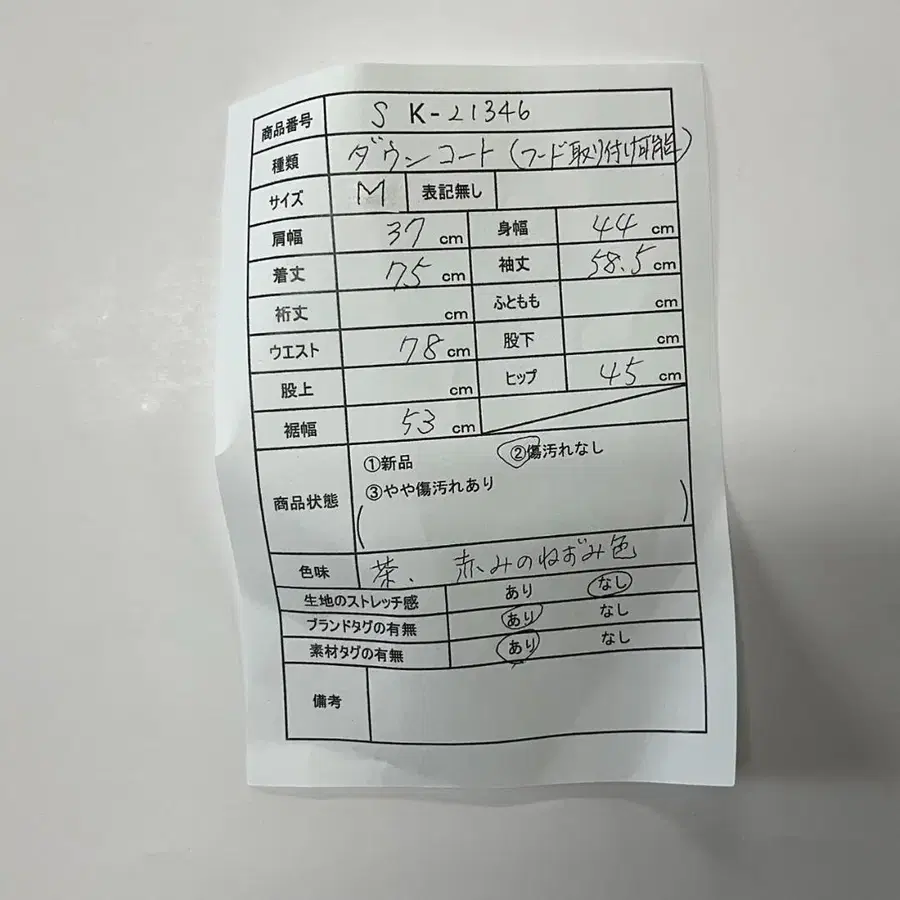 商品番号 S K-21346
種類 ダウンコート(フード取り付け可能)
サイズ M 表記無し
肩幅 37 cm 身幅 44 cm
着丈 75 cm 袖丈 58.5 cm
裄丈 cm ふともも cm
ウエスト 78 cm 股下 cm
股上 cm ヒップ 45 cm
裾幅 53 cm
商品状態 ①新品 ②傷汚れなし
③やや傷汚れあり
( )
色味 茶、 赤みのねずみ色
生地のストレッチ感 あり なし
ブランドタグの有無 あり なし
素材タグの有無 あり なし
備考